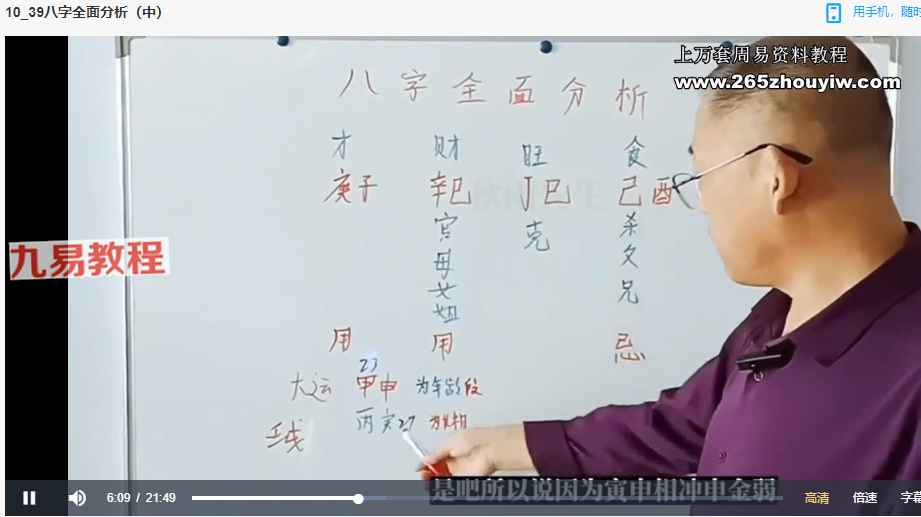 10_39八字全面分析（中）
用手机，随时
上万套周易资料教程
www.265zhouyiw.com
八字全面分析
才 财 旺 食
庚子 辛巳 丁巳 己酉
官 克 杀
母 父
女 兄
姐
用 用 忌
九易教程
23
大运 甲申 为年龄段
丙寅27
是吧所以说因为寅申相冲申金弱
6:09 / 21:49
高清 倍速 字幕